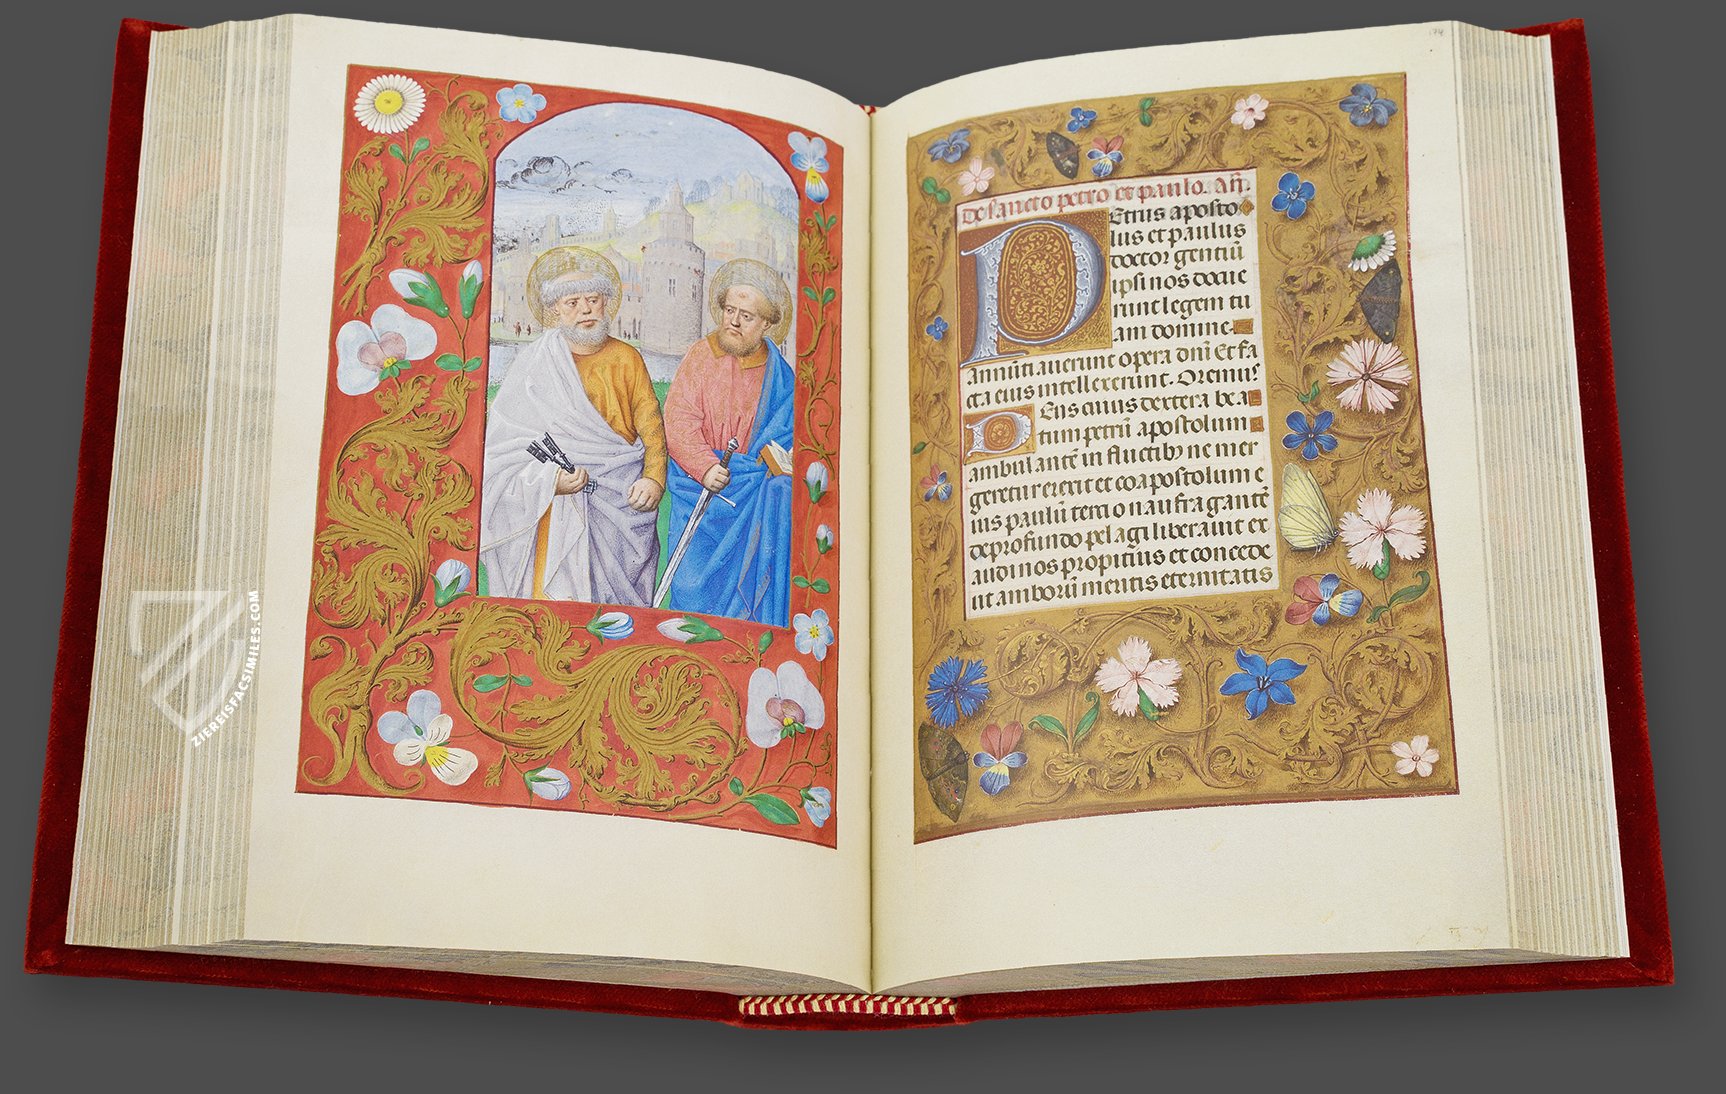 174
De sancto petro et paulo. Añ.
PEtrus aposto
lus et paulus
doctor gentiū
ipsi nos docue
runt legem tu
am domine.
Annūtiauerunt opera dñi Et fa
cta eius intellexerunt. Oremus
DEus cuius dextera bea
tum petrū apostolum
ambulantē in fluctibꝫ ne mer
geretur erexit et coapostolum e
ius paulū tertio naufragantē
de profundo pelagi liberauit ex
audi nos propitius et concede
ut amborū meritis eternitatis
ZIEREISFACSIMILES.COM